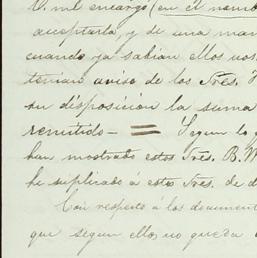 V. mi encargo (en el nomb
aceptarla, y de una man
cuando ya sabian ellos
tenian aviso de los Sres.
su disposicion la suma
remitido — = Segun lo
han mostrado estos Sres. B. W
he suplicado á estos Sres. de d
Con respecto á los document
que segun ellos no queda